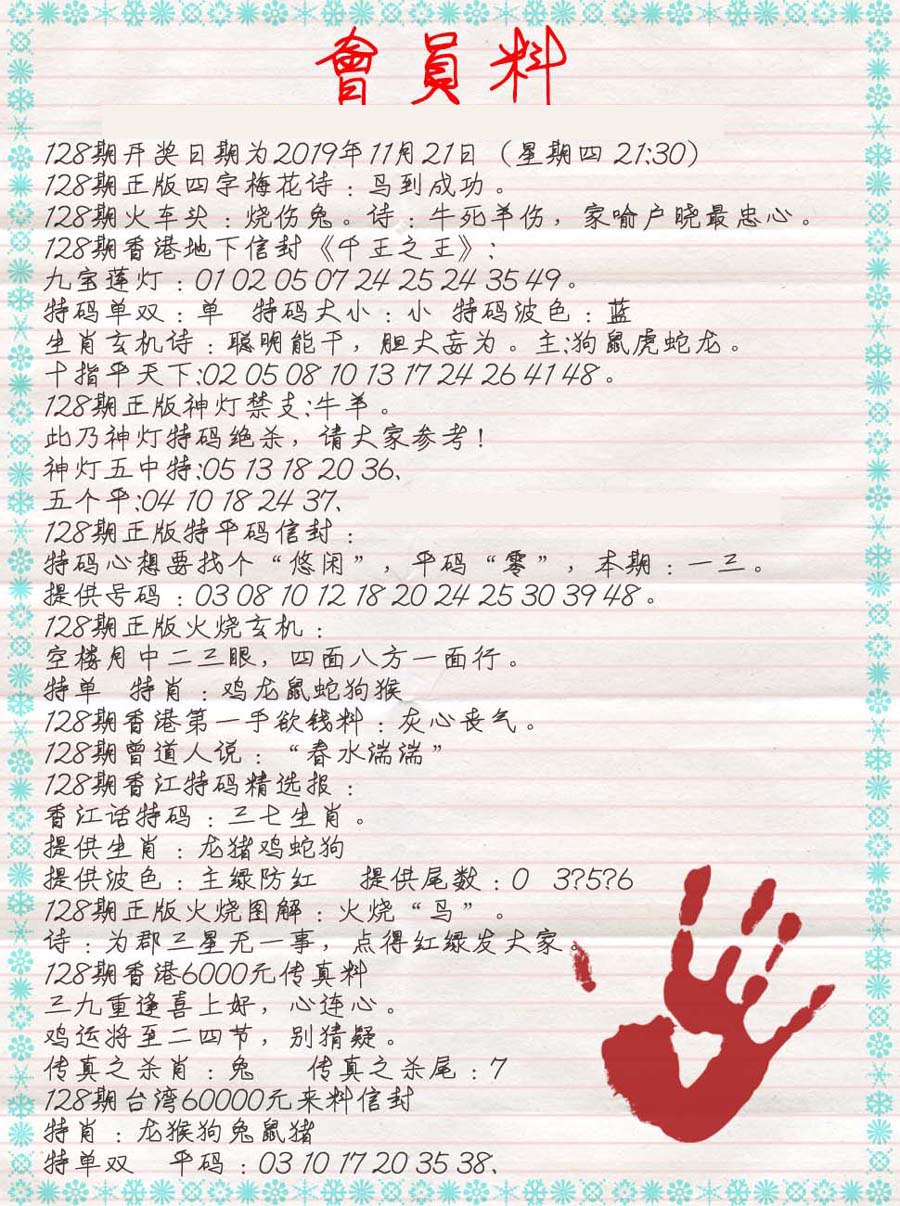 會員料
128期开奖日期为2019年11月21日（星期四 21:30）
128期正版四字梅花诗：鸟到成功。
128期火车头：烧伤兔。诗：牛死羊伤，家喻户晓最忠心。
128期香港地下信封《千王之王》:
九宝莲灯：01 02 05 07 24 25 24 35 49。
特码单双：单 特码大小：小 特码波色：蓝
生肖玄机诗：聪明能干，胆大妄为。主:狗鼠虎蛇龙。
十指平天下:02 05 08 10 13 17 24 26 41 48。
128期正版神灯禁支:牛羊。
此乃神灯特码绝杀，请大家参考！
神灯五中特:05 13 18 20 36、
五个平:04 10 18 24 37、
128期正版特平码信封：
特码心想要找个“悠闲”，平码“零”，本期：一三。
提供号码：03 08 10 12 18 20 24 25 30 39 48。
128期正版火烧玄机：
空楼月中二三眼，四面八方一面行。
特单 特肖：鸡龙鼠蛇狗猴
128期香港第一手欲钱料：灰心丧气。
128期曾道人说：“春水湍湍”
128期香江特码精选报：
香江话特码：三七生肖。
提供生肖：龙猪鸡蛇狗
提供波色：主绿防红 提供尾数：0 3?5?6
128期正版火烧图解：火烧“鸟”。
诗：为郡三星无一事，点得红绿发大家。
128期香港6000元传真料
三九重逢喜上好，心连心。
鸡运将至二四节，别猜疑。
传真之杀肖：兔 传真之杀尾：7
128期台湾60000元来料信封
特肖：龙猴狗兔鼠猪
特单双 平码：03 10 17 20 35 38、